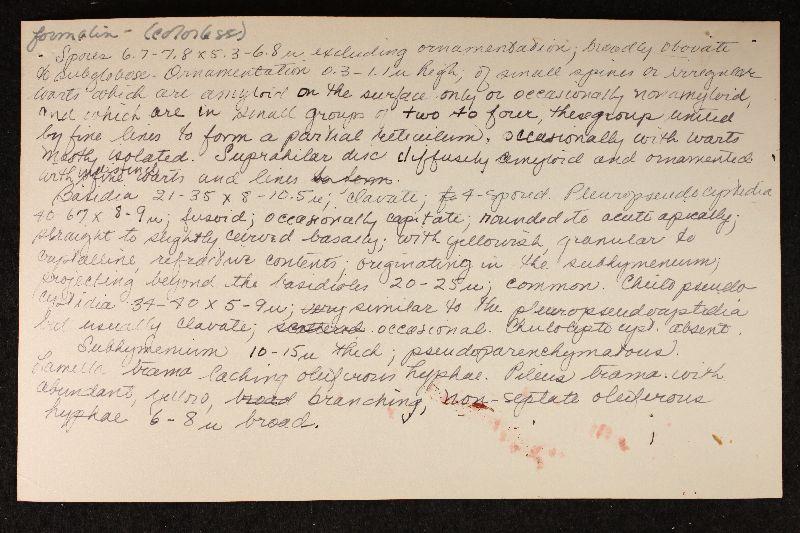 formalin - (colorless)
Spores 6.7-7.8 x 5.3-6.8 u excluding ornamentation; broadly obovate
to subglobose. Ornamentation 0.3-1.1 u high, of small spines or irregular
warts which are amyloid on the surface only or occasionally nonamyloid,
and which are in small groups of two to four, the group united
by fine lines to form a partial reticulum, occasionally with warts
mostly isolated. Suprahilar disc diffusely amyloid and ornamented
with fine warts and lines to form.
Basidia 21-35 x 8-10.5 u; clavate; 4-spored. Pleuropseudocystidia
40-67 x 8-9 u; fusoid; occasionally capitate; rounded to acute apically;
straight to slightly curved basally; with yellowish, granular to
crystalline, refractive contents; originating in the subhymenium;
projecting beyond the basidioles 20-25 u; common. Cheilopseudo-
cystidia 34-40 x 5-9 u; very similar to the pleuropseudocystidia
but usually clavate; scattered occasional. Cheilocyst. absent.
Subhymenium 10-15 u thick; pseudoparenchymatous.
Lamella trama lacking oleiferous hyphae. Pileus trama with
abundant, yellow, broad branching, non-septate oleiferous
hyphae 6-8 u broad.